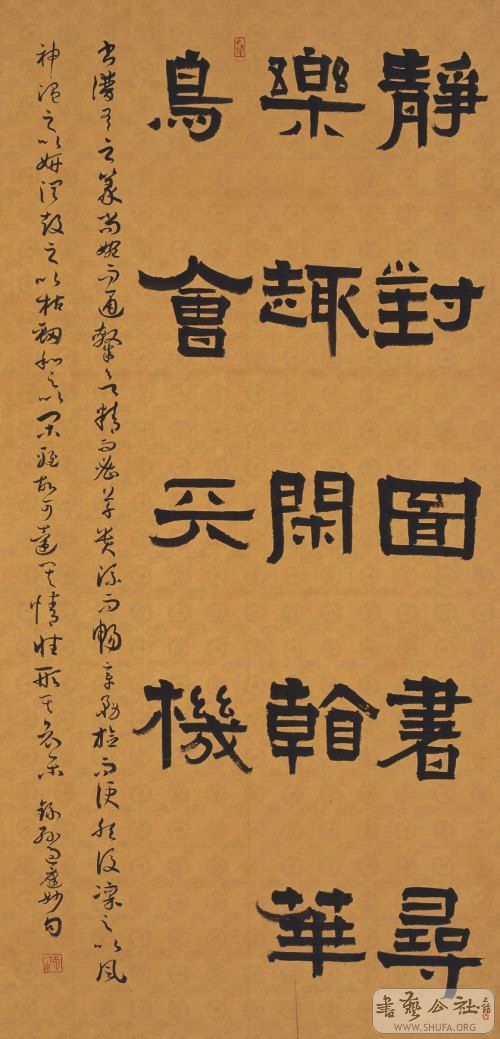 靜對圖書尋
樂趣閑看華
鳥會天機
書譜有之篆尚婉而通隸欲精而密草貴流而暢章務檢而便然後凜之以風
神溫之以妍潤鼓之以枯勁和之以閑雅故可達其情性形其哀樂 錄孫過庭妙句
書藝公社
WWW.SHUFA.ORG